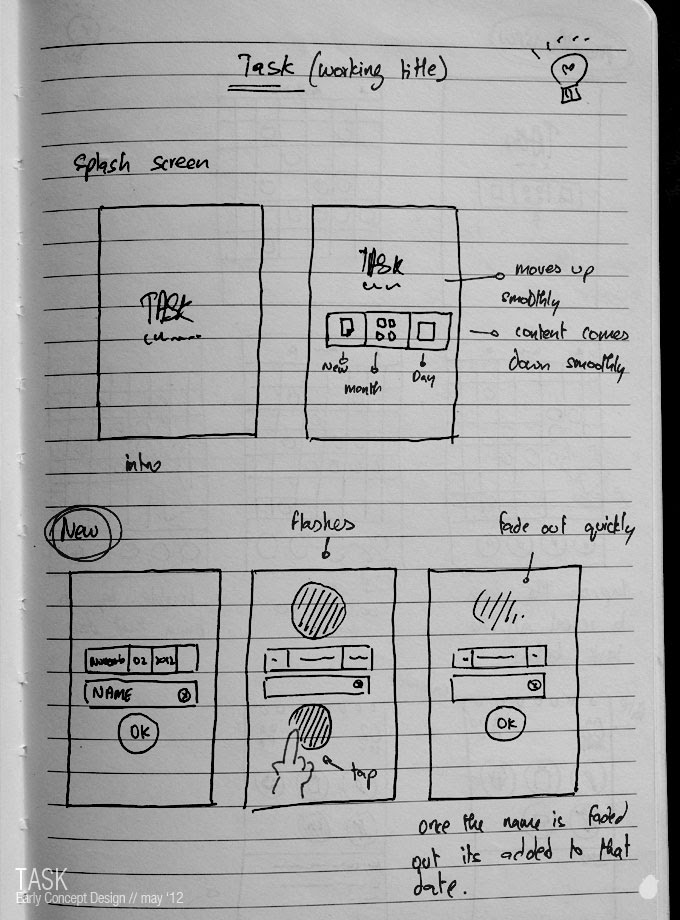 Task (working title)
Splash screen
TASK
TASK
moves up
smoothly
content comes
down smoothly
New
month
Day
intro
New
flashes
fade out quickly
02
2012
NAME
OK
tap
OK
once the name is faded
out its added to that
date.
TASK
Early Concept Design // may '12